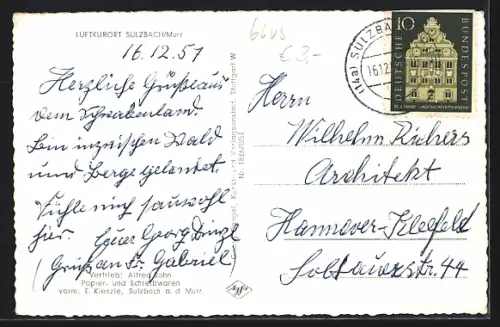 LUFTKURORT SULZBACH/Murr
16.12.57
Herzliche Grüße aus
dem Schwabenland.
Bin inzwischen Wald
und Berge gelandet.
Fühle mich sauwohl
hier. Euer Georg
(Gruß an Dr. Gabriel)
Vertrieb: Alfred John
Papier- und Schreibwaren
vorm. E. Kienzle, Sulzbach a. d. Murr
Stuttgart W
€ 3,-
(14a) SULZBA
16.12
10
DEUTSCHE
BUNDESPOST
Herrn
Wilhelm Richers
Architekt
Hannover-Kleefeld
Soltauerstr. 44
Agfa